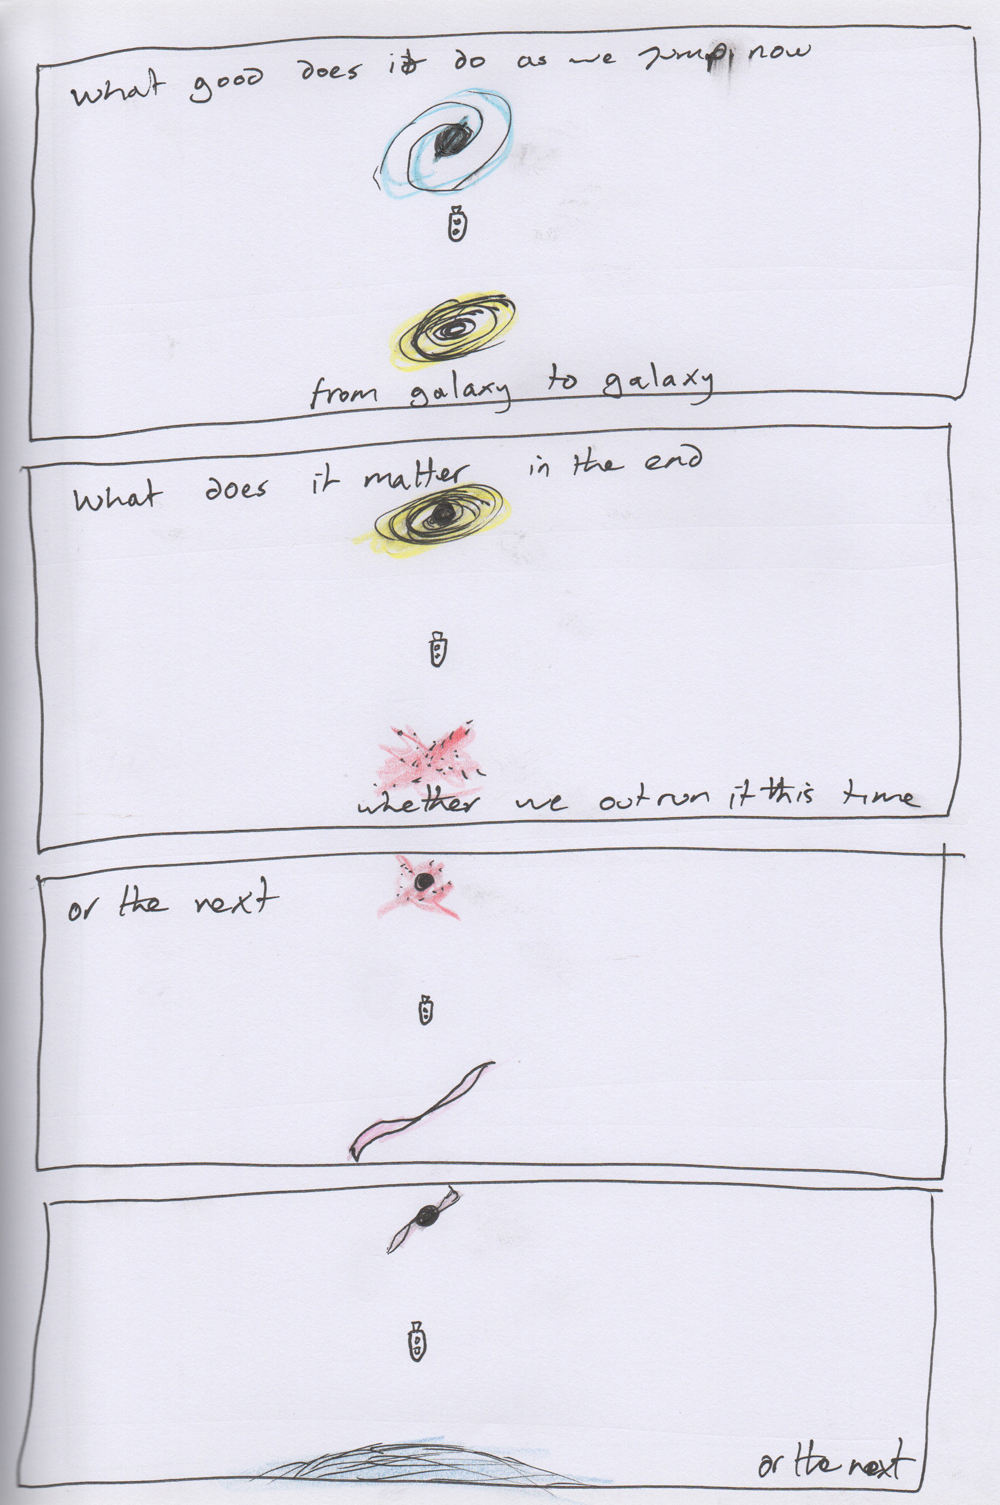 What good does it do as we jump, now
from galaxy to galaxy
What does it matter in the end
whether we outrun it this time
or the next
or the next